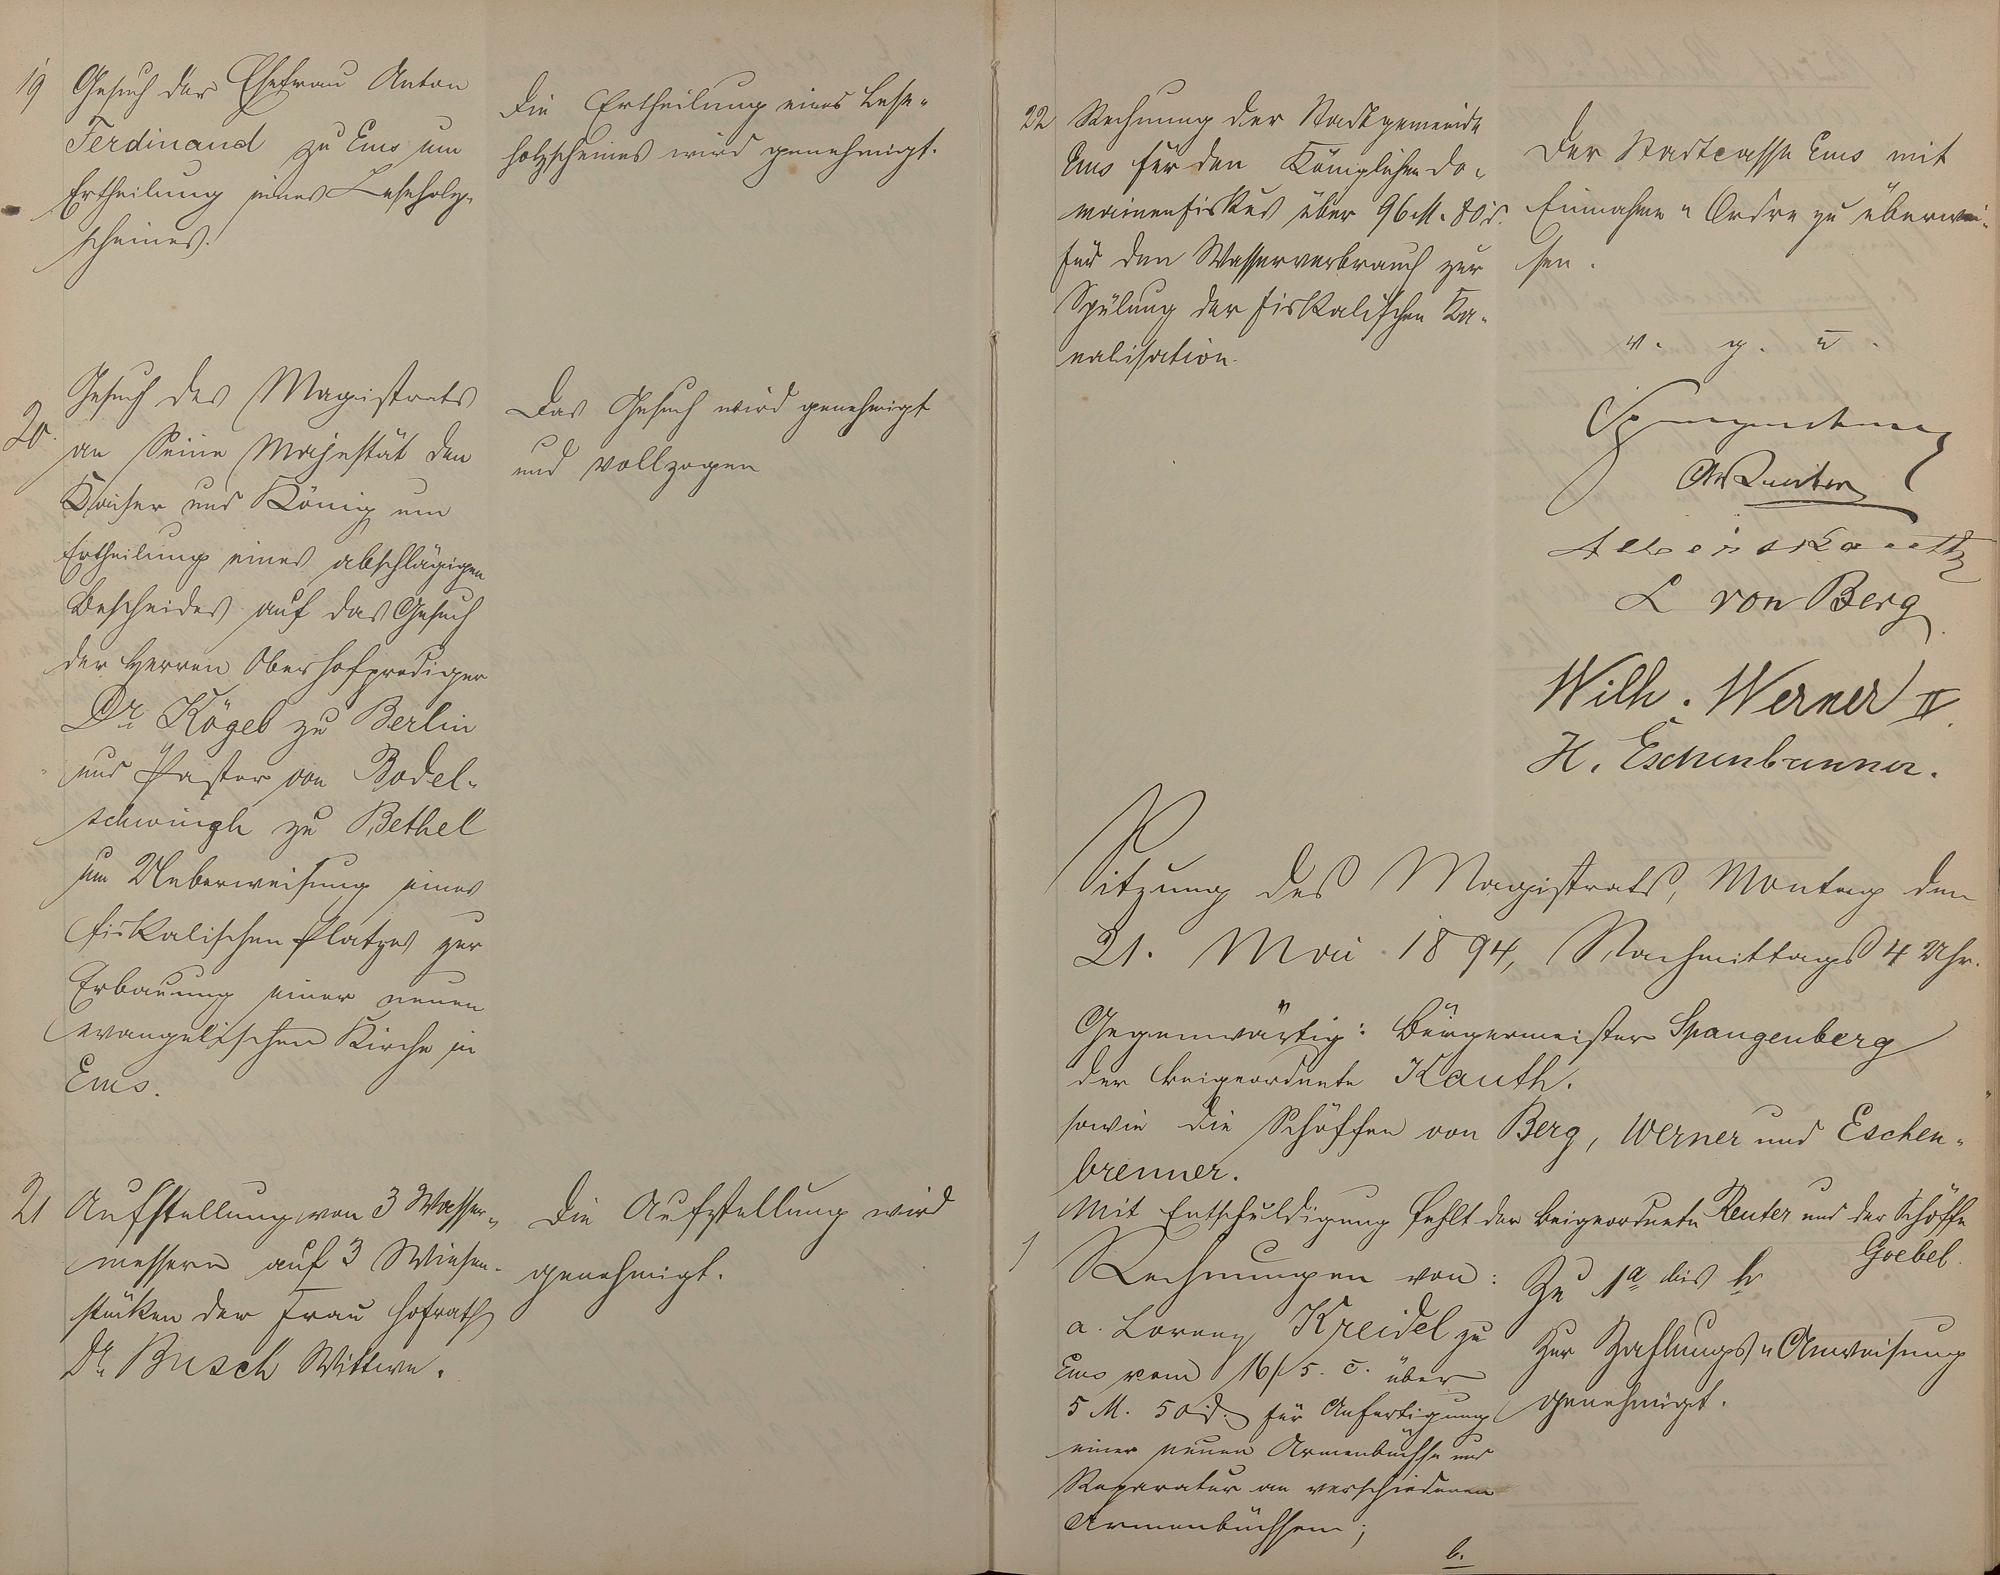 19 Gesuch der Ehefrau Anton
Ferdinand zu Ems um
Ertheilung eines Leseholz-
scheines.
Die Ertheilung eines Lese-
holzscheines wird genehmigt.
20. Gesuch des Magistrats
an Seine Majestät den
Kaiser und König um
Ertheilung eines abschlägigen
Bescheides auf das Gesuch
der Herren Oberhofprediger
Dr. Kögel zu Berlin
und Pastor von Bodel-
schwingh zu Bethel
um Ueberweisung eines
fiskalischen Platzes zur
Erbauung einer neuen
evangelischen Kirche in
Ems.
Das Gesuch wird genehmigt
und vollzogen
21 Aufstellung von 3 Wasser-
messern auf 3 Wiesen-
stücken der Frau Hofrath
Dr. Busch Wittwe.
Die Aufstellung wird
genehmigt.
22 Rechnung der Stadtgemeinde
Ems für den Königlichen Do-
mainenfiskus über 96 M. 80 d.
für den Wasserverbrauch zur
Spülung der fiskalischen Ka-
nalisation.
Der Stadtcasse Ems mit
Einnahme-Ordre zu überwei-
sen.
v. g. u.
Spangenberg
Kauth
L von Berg
Wilh. Werner II.
H. Eschenbrenner.
Sitzung des Magistrats, Montag den
21. Mai 1894, Nachmittags 4 Uhr.
Gegenwärtig: Bürgermeister Spangenberg
der Beigeordnete Kauth.
sowie die Schöffen von Berg, Werner und Eschen-
brenner.
Mit Entschuldigung fehlt der Beigeordnete Reuter und der Schöffe
Goebel.
1 Rechnungen von:
a. Lorenz Kreidel zu
Ems vom 16/5. c. über
5 M. 50 d. für Anfertigung
einer neuen Armenbüchse und
Reparatur an verschiedenen
Armenbüchsen;
Zu 1a bis
Zur Zahlungs-Anweisung
genehmigt.
b.